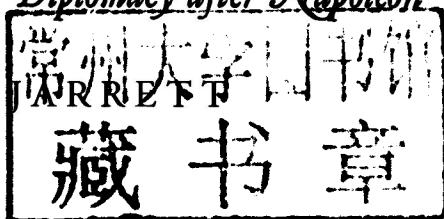 Diplomacy after Napoleon
常州大学图书馆
JARRETT
藏书章